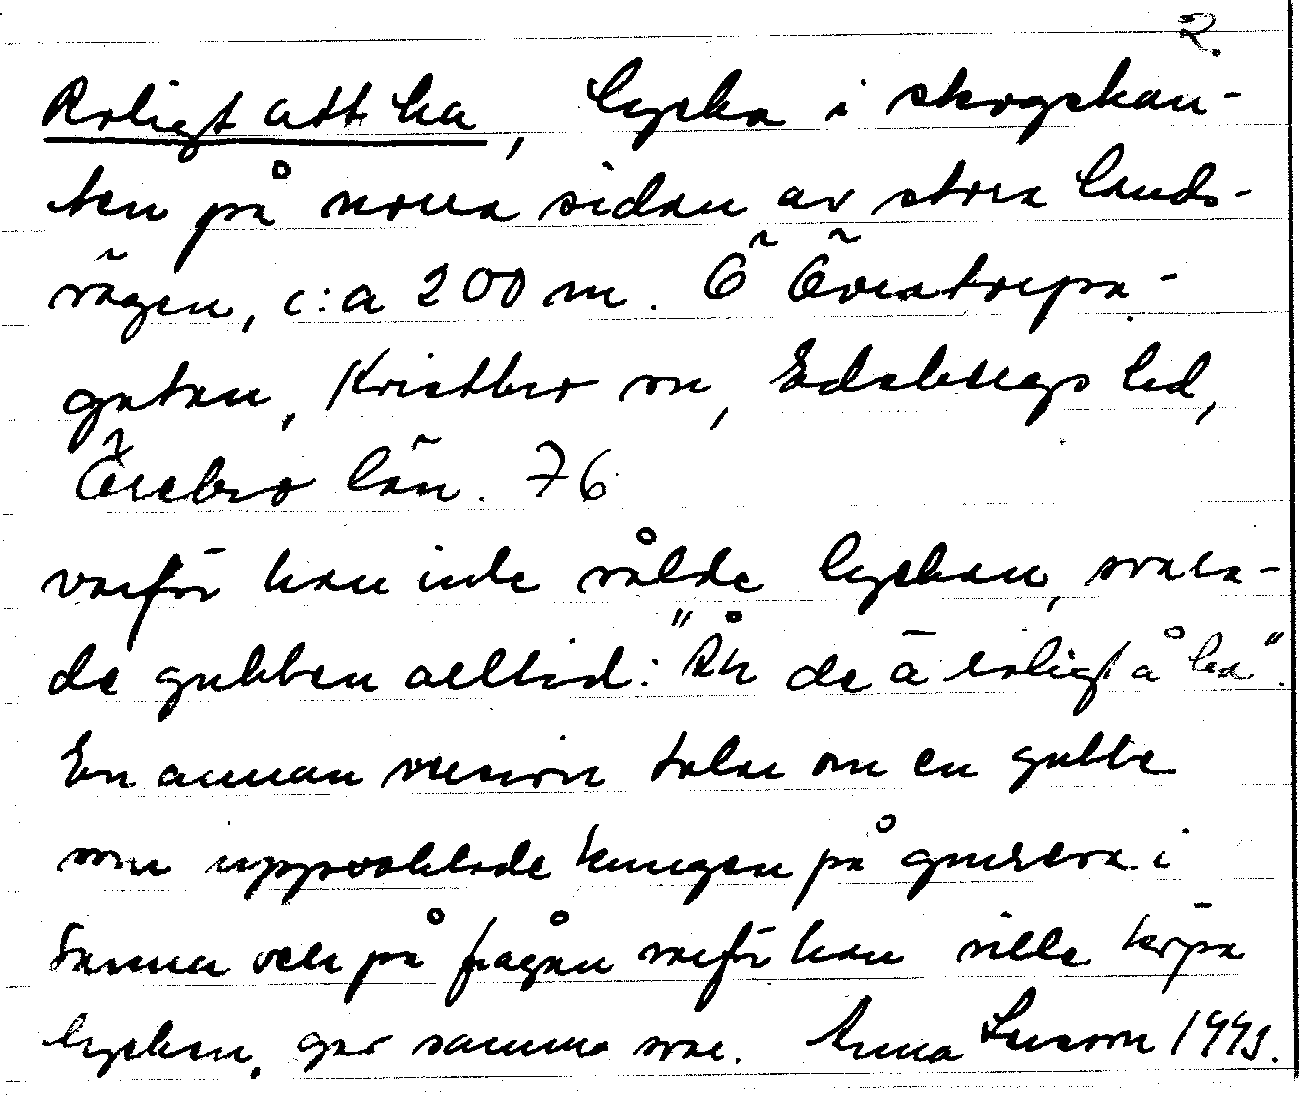 2.
Roligt att ha, lycka i skogskan-
ten på norra sidan av stora lands-
vägen, c:a 200 m. Ö Överstorpa-
gatan, Kristbro sn, Edsbergs hd,
Örebro län. 76
varför han inte sålde lyckan, svara-
de gubben alltid: "Åh de ä roligt å ha".
En annan version talar om en gubbe
som uppvaktade kungen på gruvorna i
Sanna och på frågan varför han ville köpa
lyckan, gav samma svar. Anna Larsson 1993.